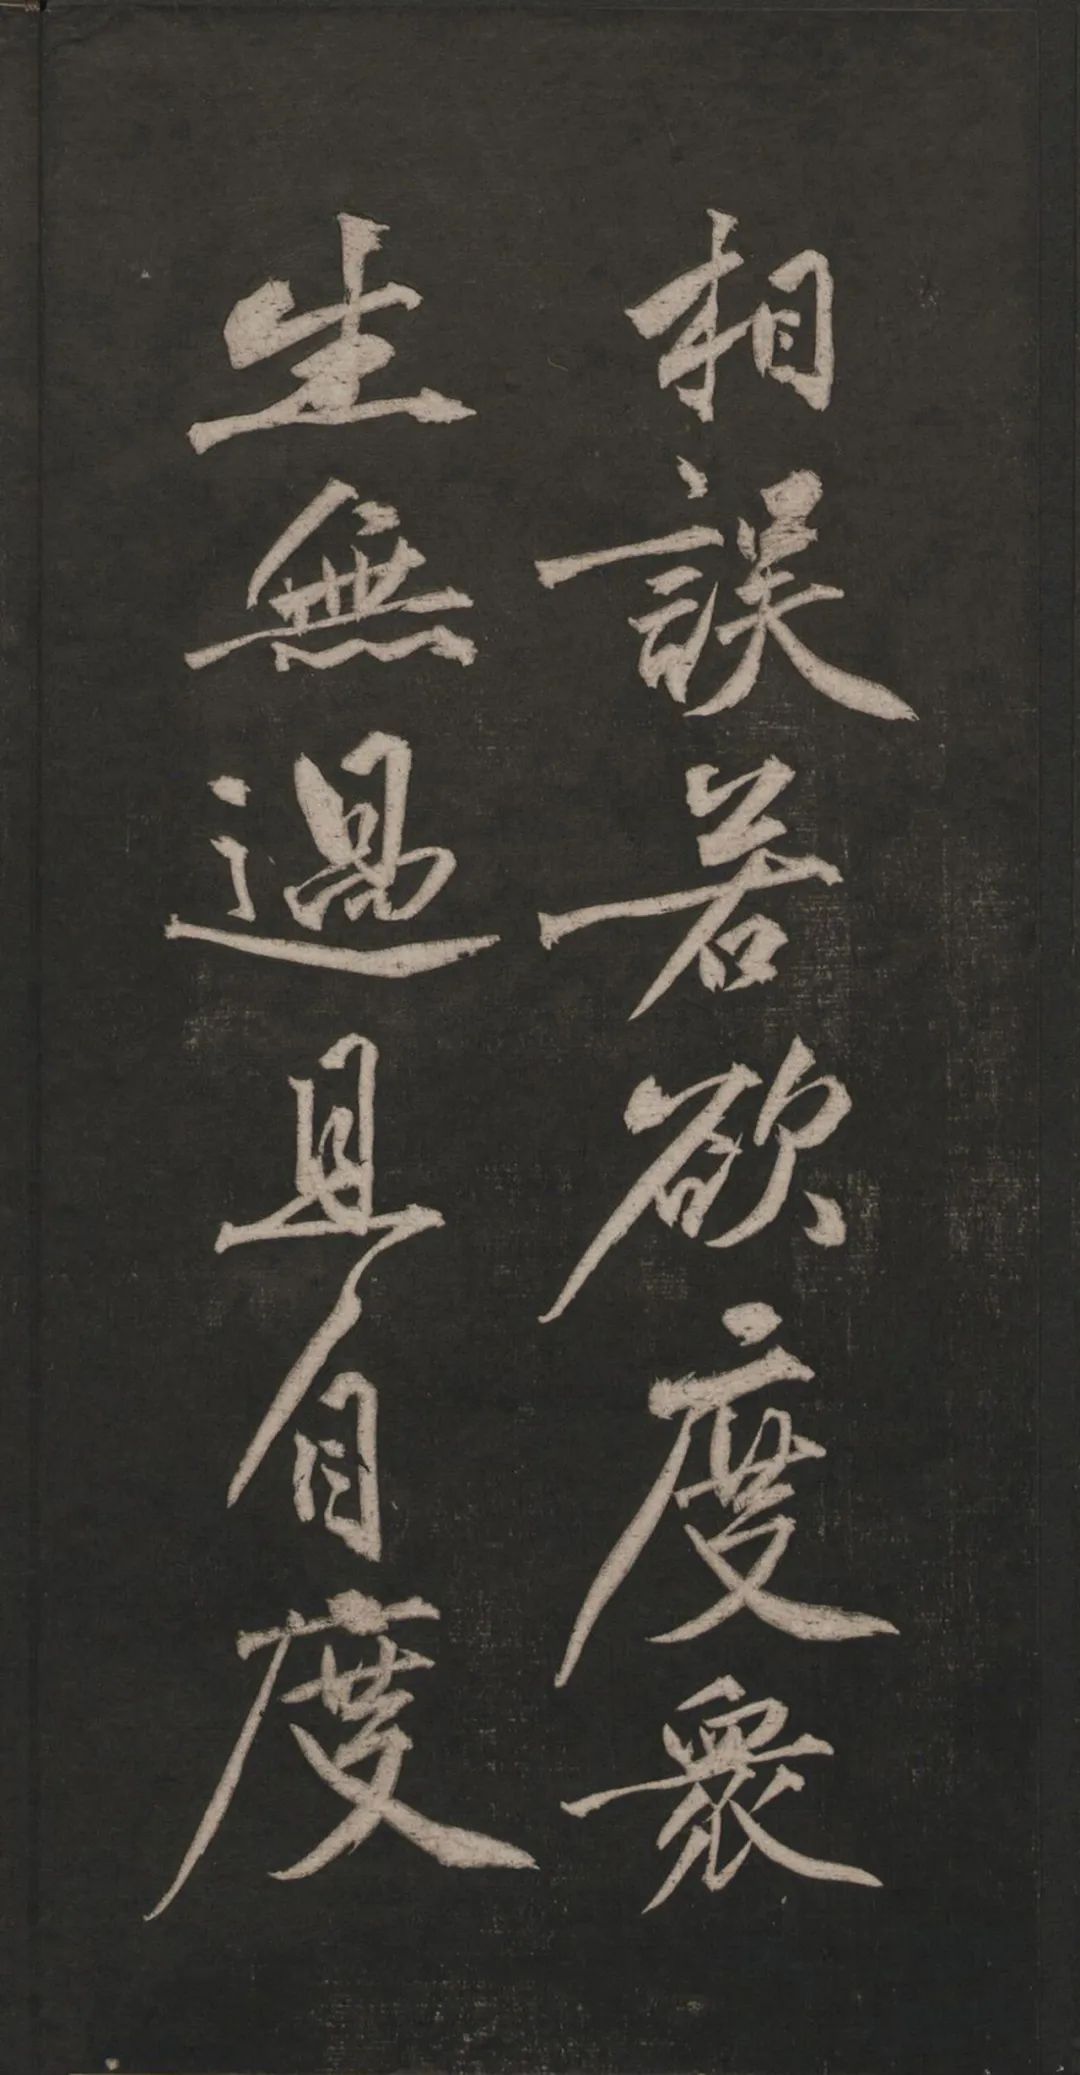 相誤若欲度衆
生無過且自度